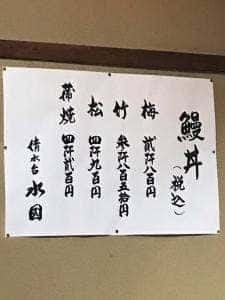 鰻丼（税込）
梅 貮阡八百円
竹 参阡八百五拾円
松 四阡九百円
蒲焼 四阡貮百円
清水 水